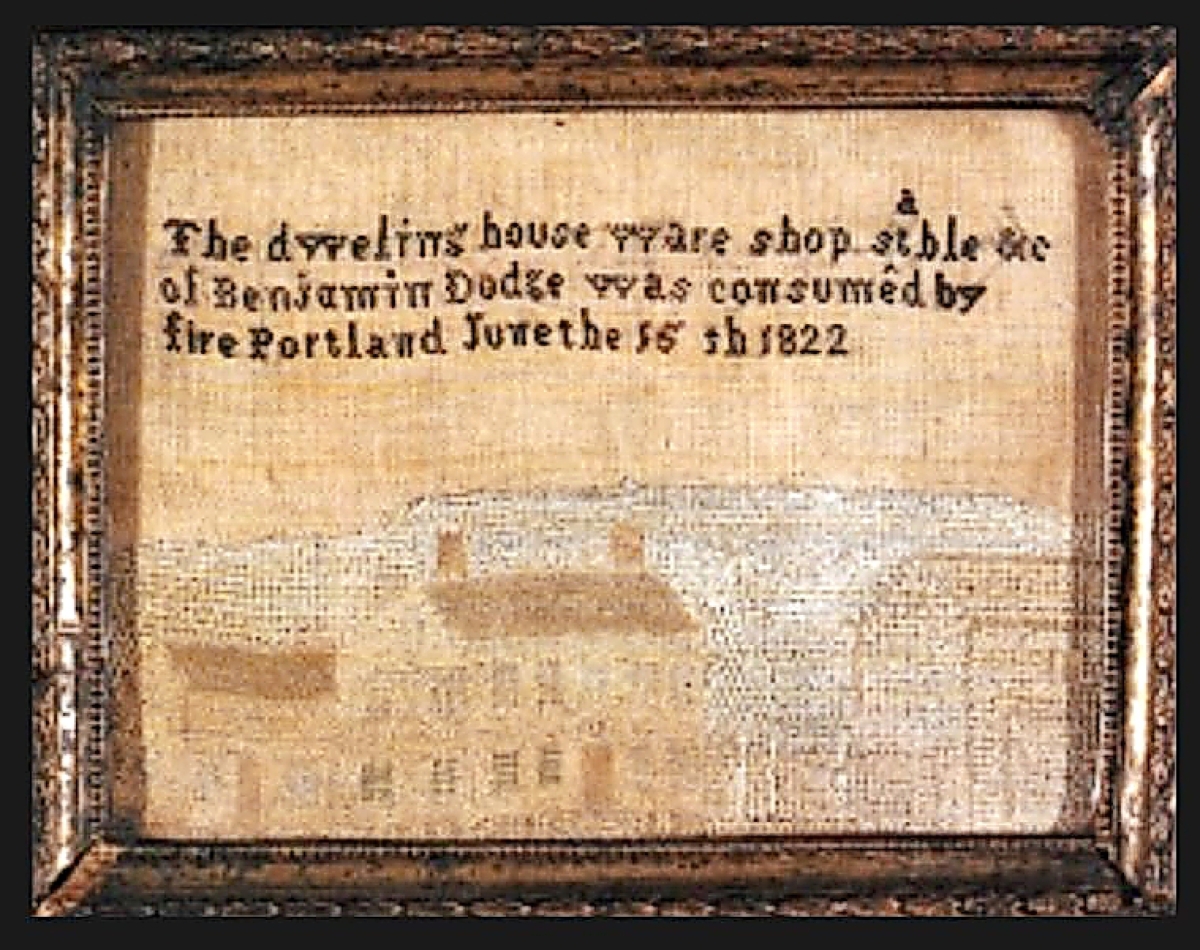 The dwweling house wware shop stable &c
of Benjamin Dodge wwas consumêd by
fire Portland June the 15 th 1822